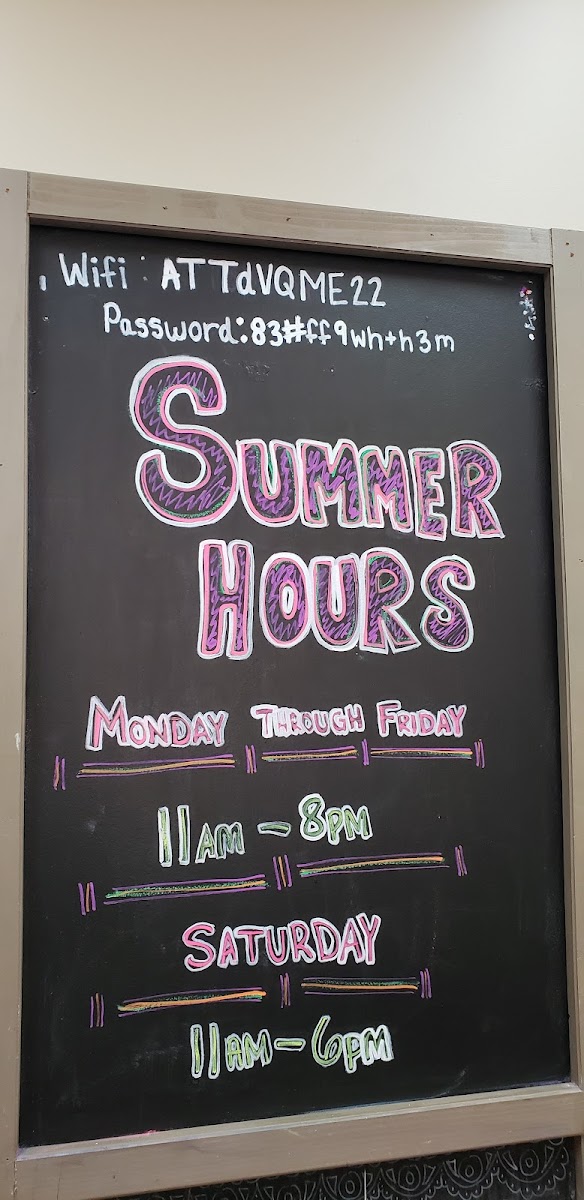 Wifi: ATTdVQME22
Password:83#ff9wh+h3m
SUMMER
HOURS
MONDAY THROUGH FRIDAY
11AM - 8PM
SATURDAY
11AM - 6PM